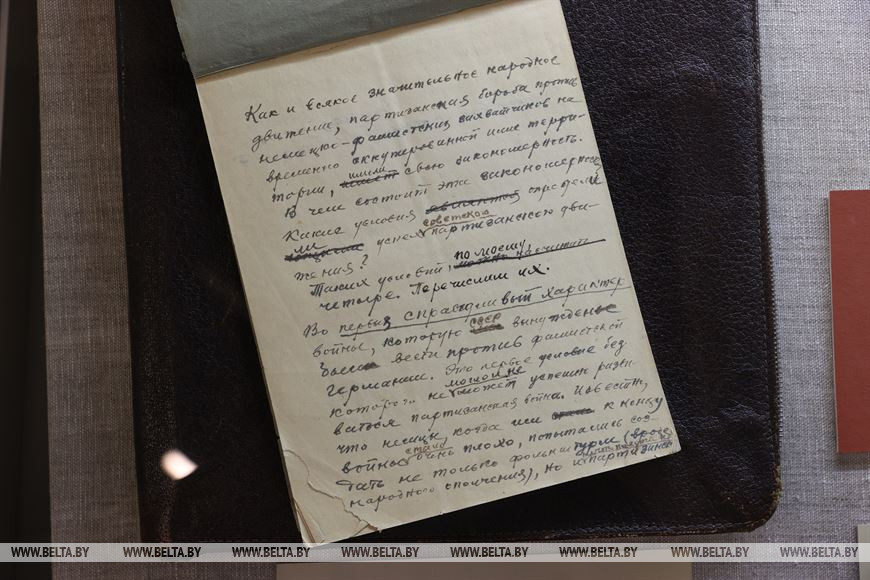 Как и всякое значительное народное
движение, партизанская борьба против
немецко-фашистских захватчиков на
временно оккупированной ими терри-
тории, имела свою закономерность.
В чем состоит эта закономерность
Какие условия определи
ли успех советского партизанского дви-
жения?
Таких условий, по моему,
четыре. Перечислим их.
Во первых справедливый характер
войны, которую СССР вынужден
был вести против фашистской
Германии. Это первое условие без
которого не могла и не может успешно разви-
ваться партизанская война. Известно,
что немцы, когда им к концу
войны стало очень плохо, попытались соз-
дать не только фольксштурм (вроде
народного ополчения), но и партизанск
WWW.BELTA.BY WWW.BELTA.BY WWW.BELTA.BY WWW.BELTA.BY WWW.BELTA.BY WWW.BELTA.BY WWW.BELTA.BY WWW.BELTA.BY